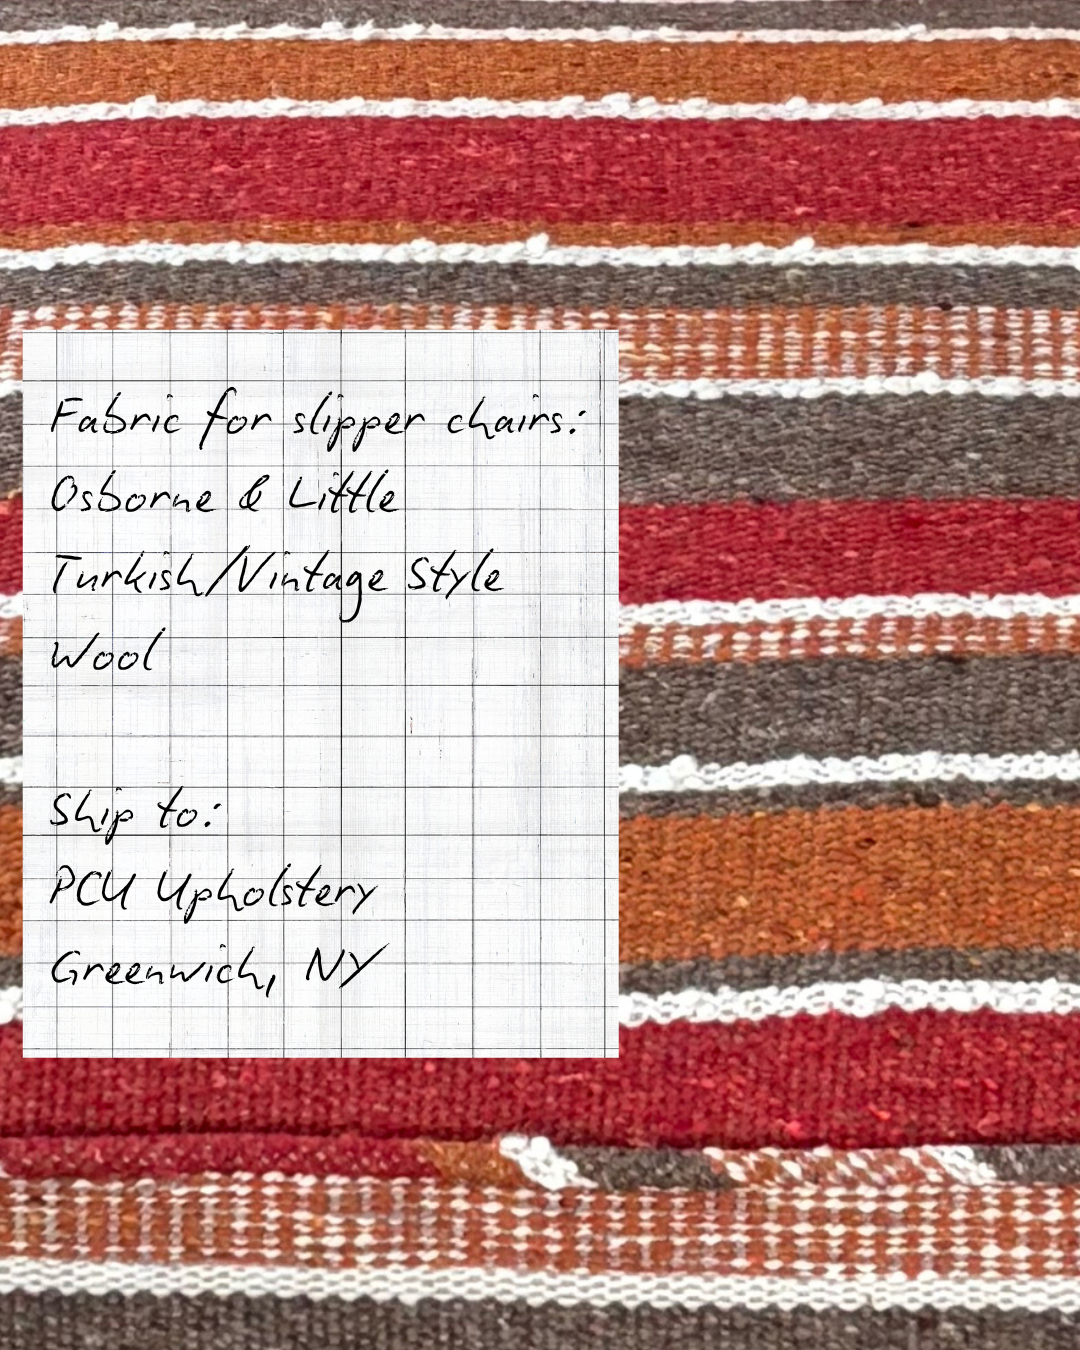 Fabric for slipper chairs:
Osborne & Little
Turkish/Vintage Style
Wool
Ship to:
PCU Upholstery
Greenwich, NY